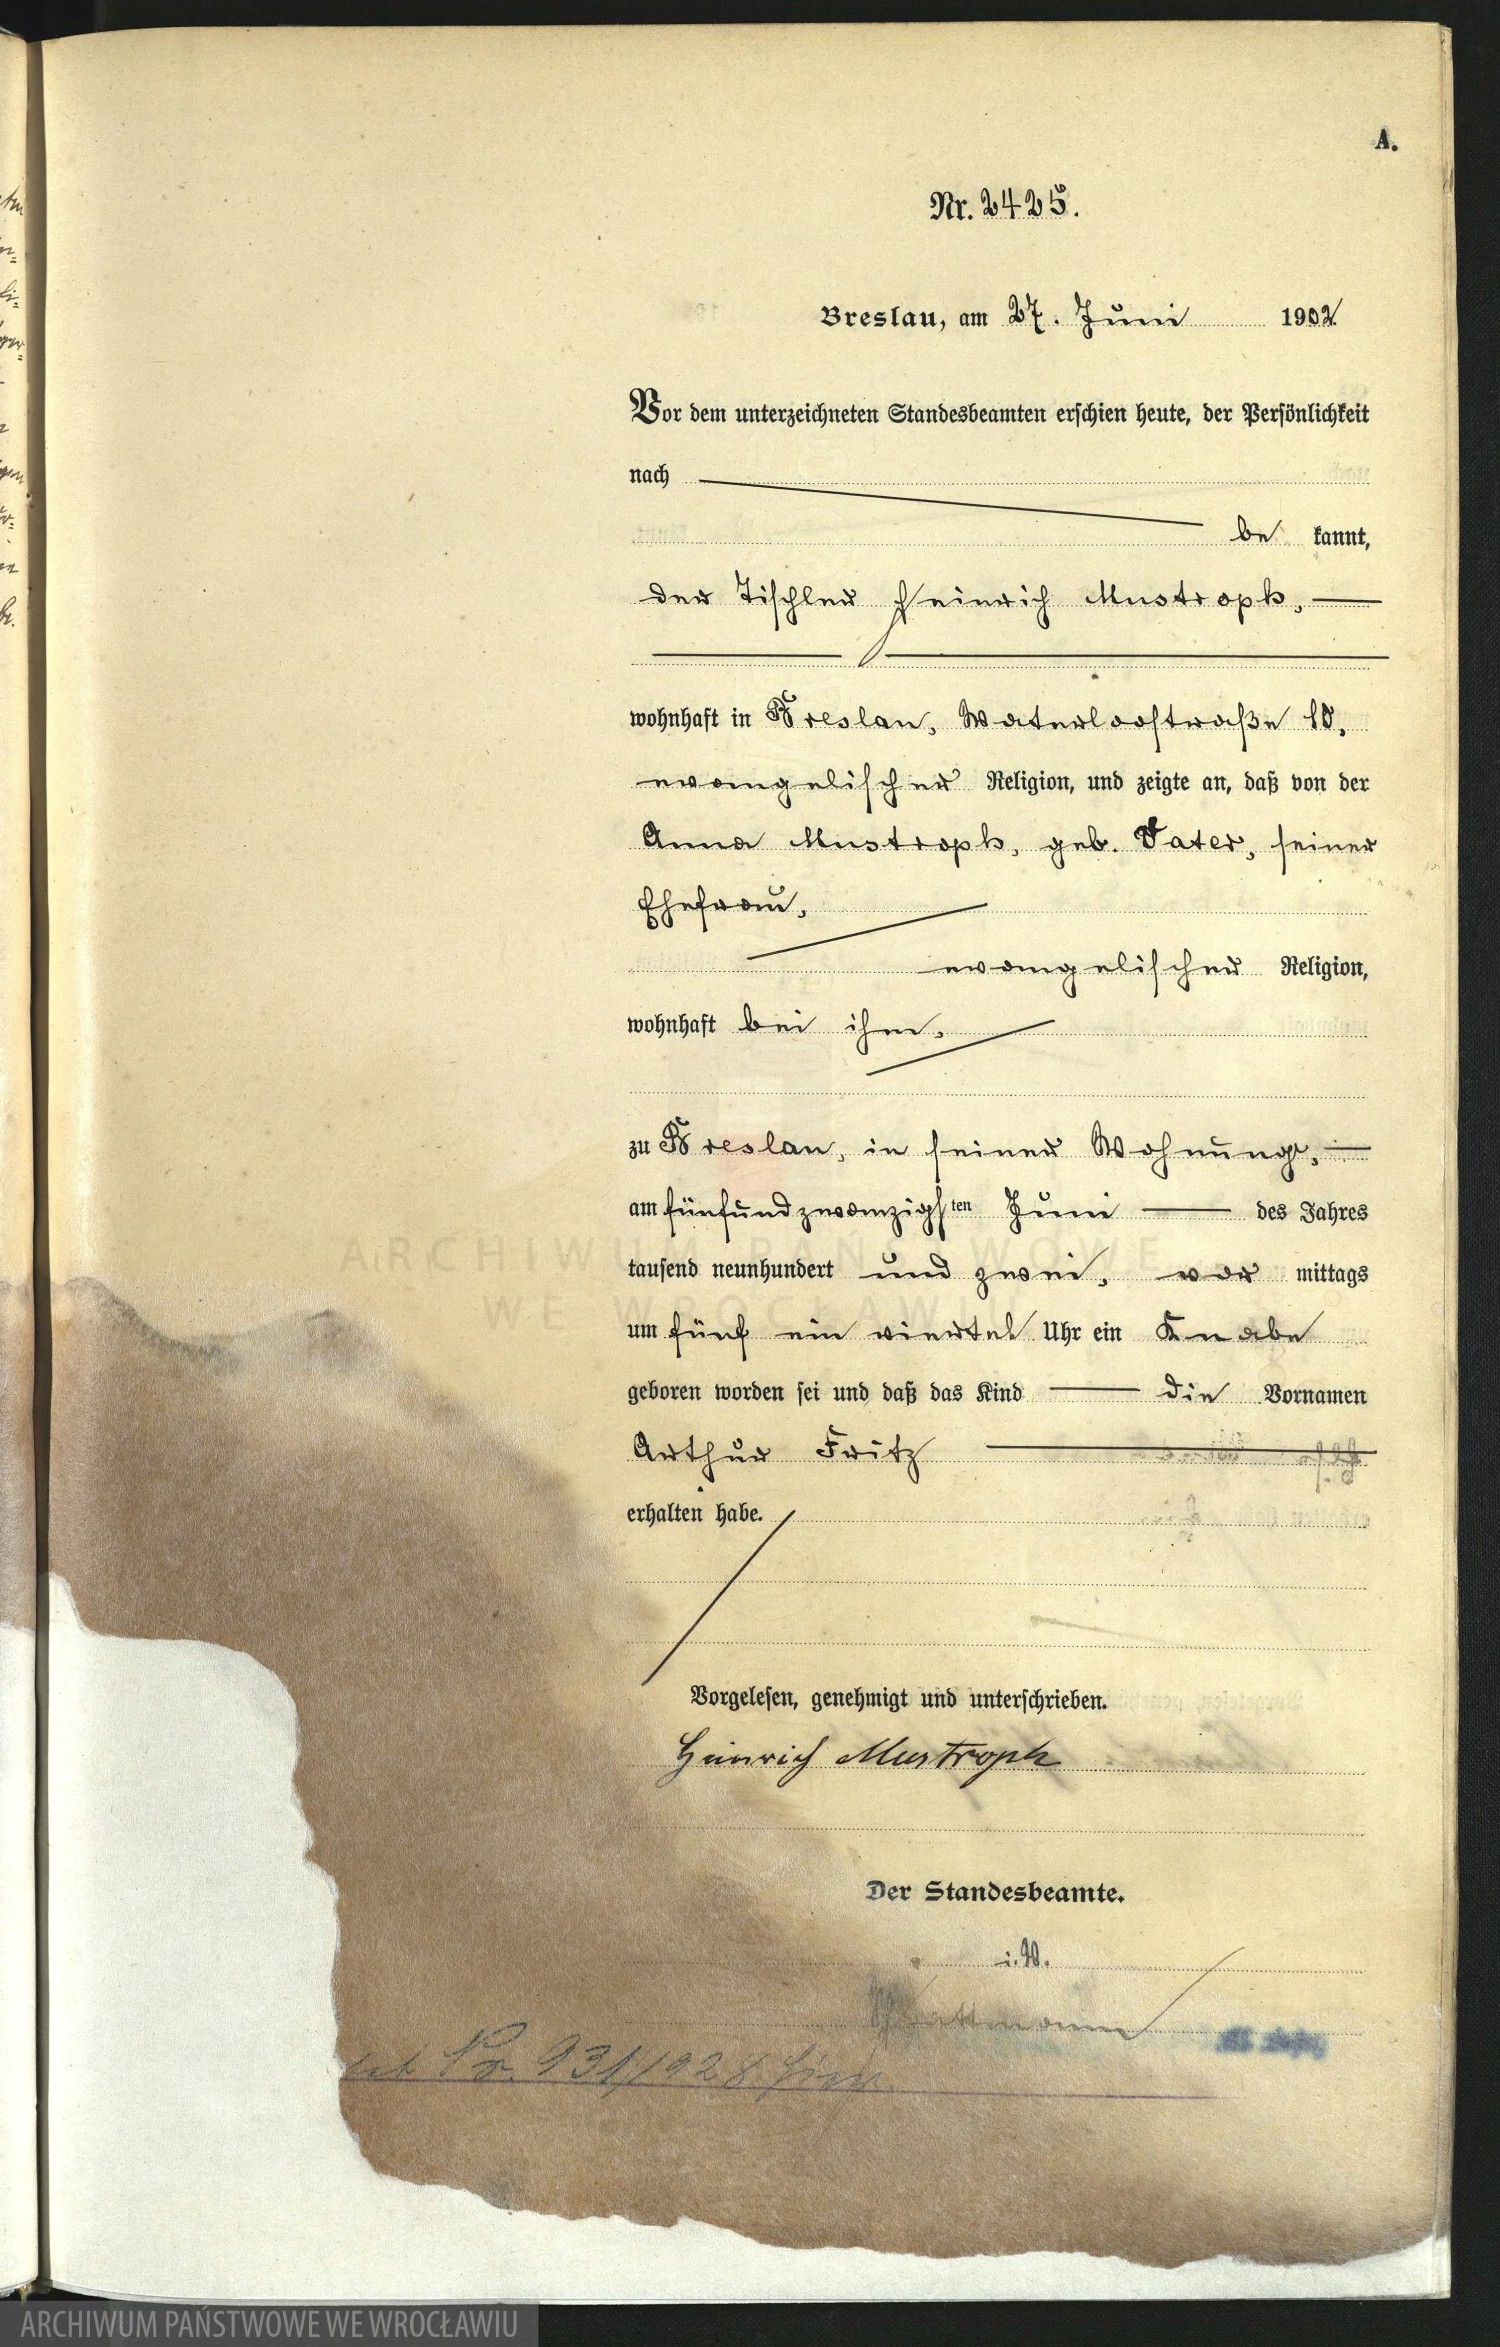 A.
Nr. 2425.
Breslau, am 27. Juni 1902.
Vor dem unterzeichneten Standesbeamten erschien heute, der Persönlichkeit
nach
be kannt,
der Tischler Heinrich Mustroph,
wohnhaft in Breslau, Waterloostraße 10,
evangelischer Religion, und zeigte an, daß von der
Anna Mustroph, geb. Vater, seiner
Ehefrau,
evangelischer Religion,
wohnhaft bei ihm,
zu Breslau, in seiner Wohnung,
am fünfundzwanzigsten Juni des Jahres
tausend neunhundert und zwei, vor mittags
um fünf ein viertel Uhr ein Knabe
geboren worden sei und daß das Kind die Vornamen
Arthur Fritz
erhalten habe.
Vorgelesen, genehmigt und unterschrieben.
Heinrich Mustroph
Der Standesbeamte.
i.V.
931/1928
ARCHIWUM PAŃSTWOWE
WE WROCŁAWIU
ARCHIWUM PAŃSTWOWE WE WROCŁAWIU